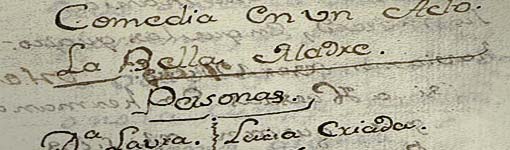 Comedia en un Acto.
La Bella Madre.
Personas.
Dª Laura. Lucia Criada.